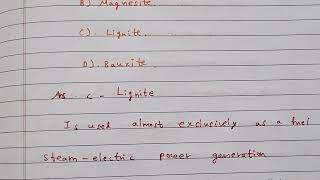 B). Magnesite.
C). Lignite.
D). Bauxite.
As c - Lignite
Is used almost exclusively as a fuel
steam-electric power generation